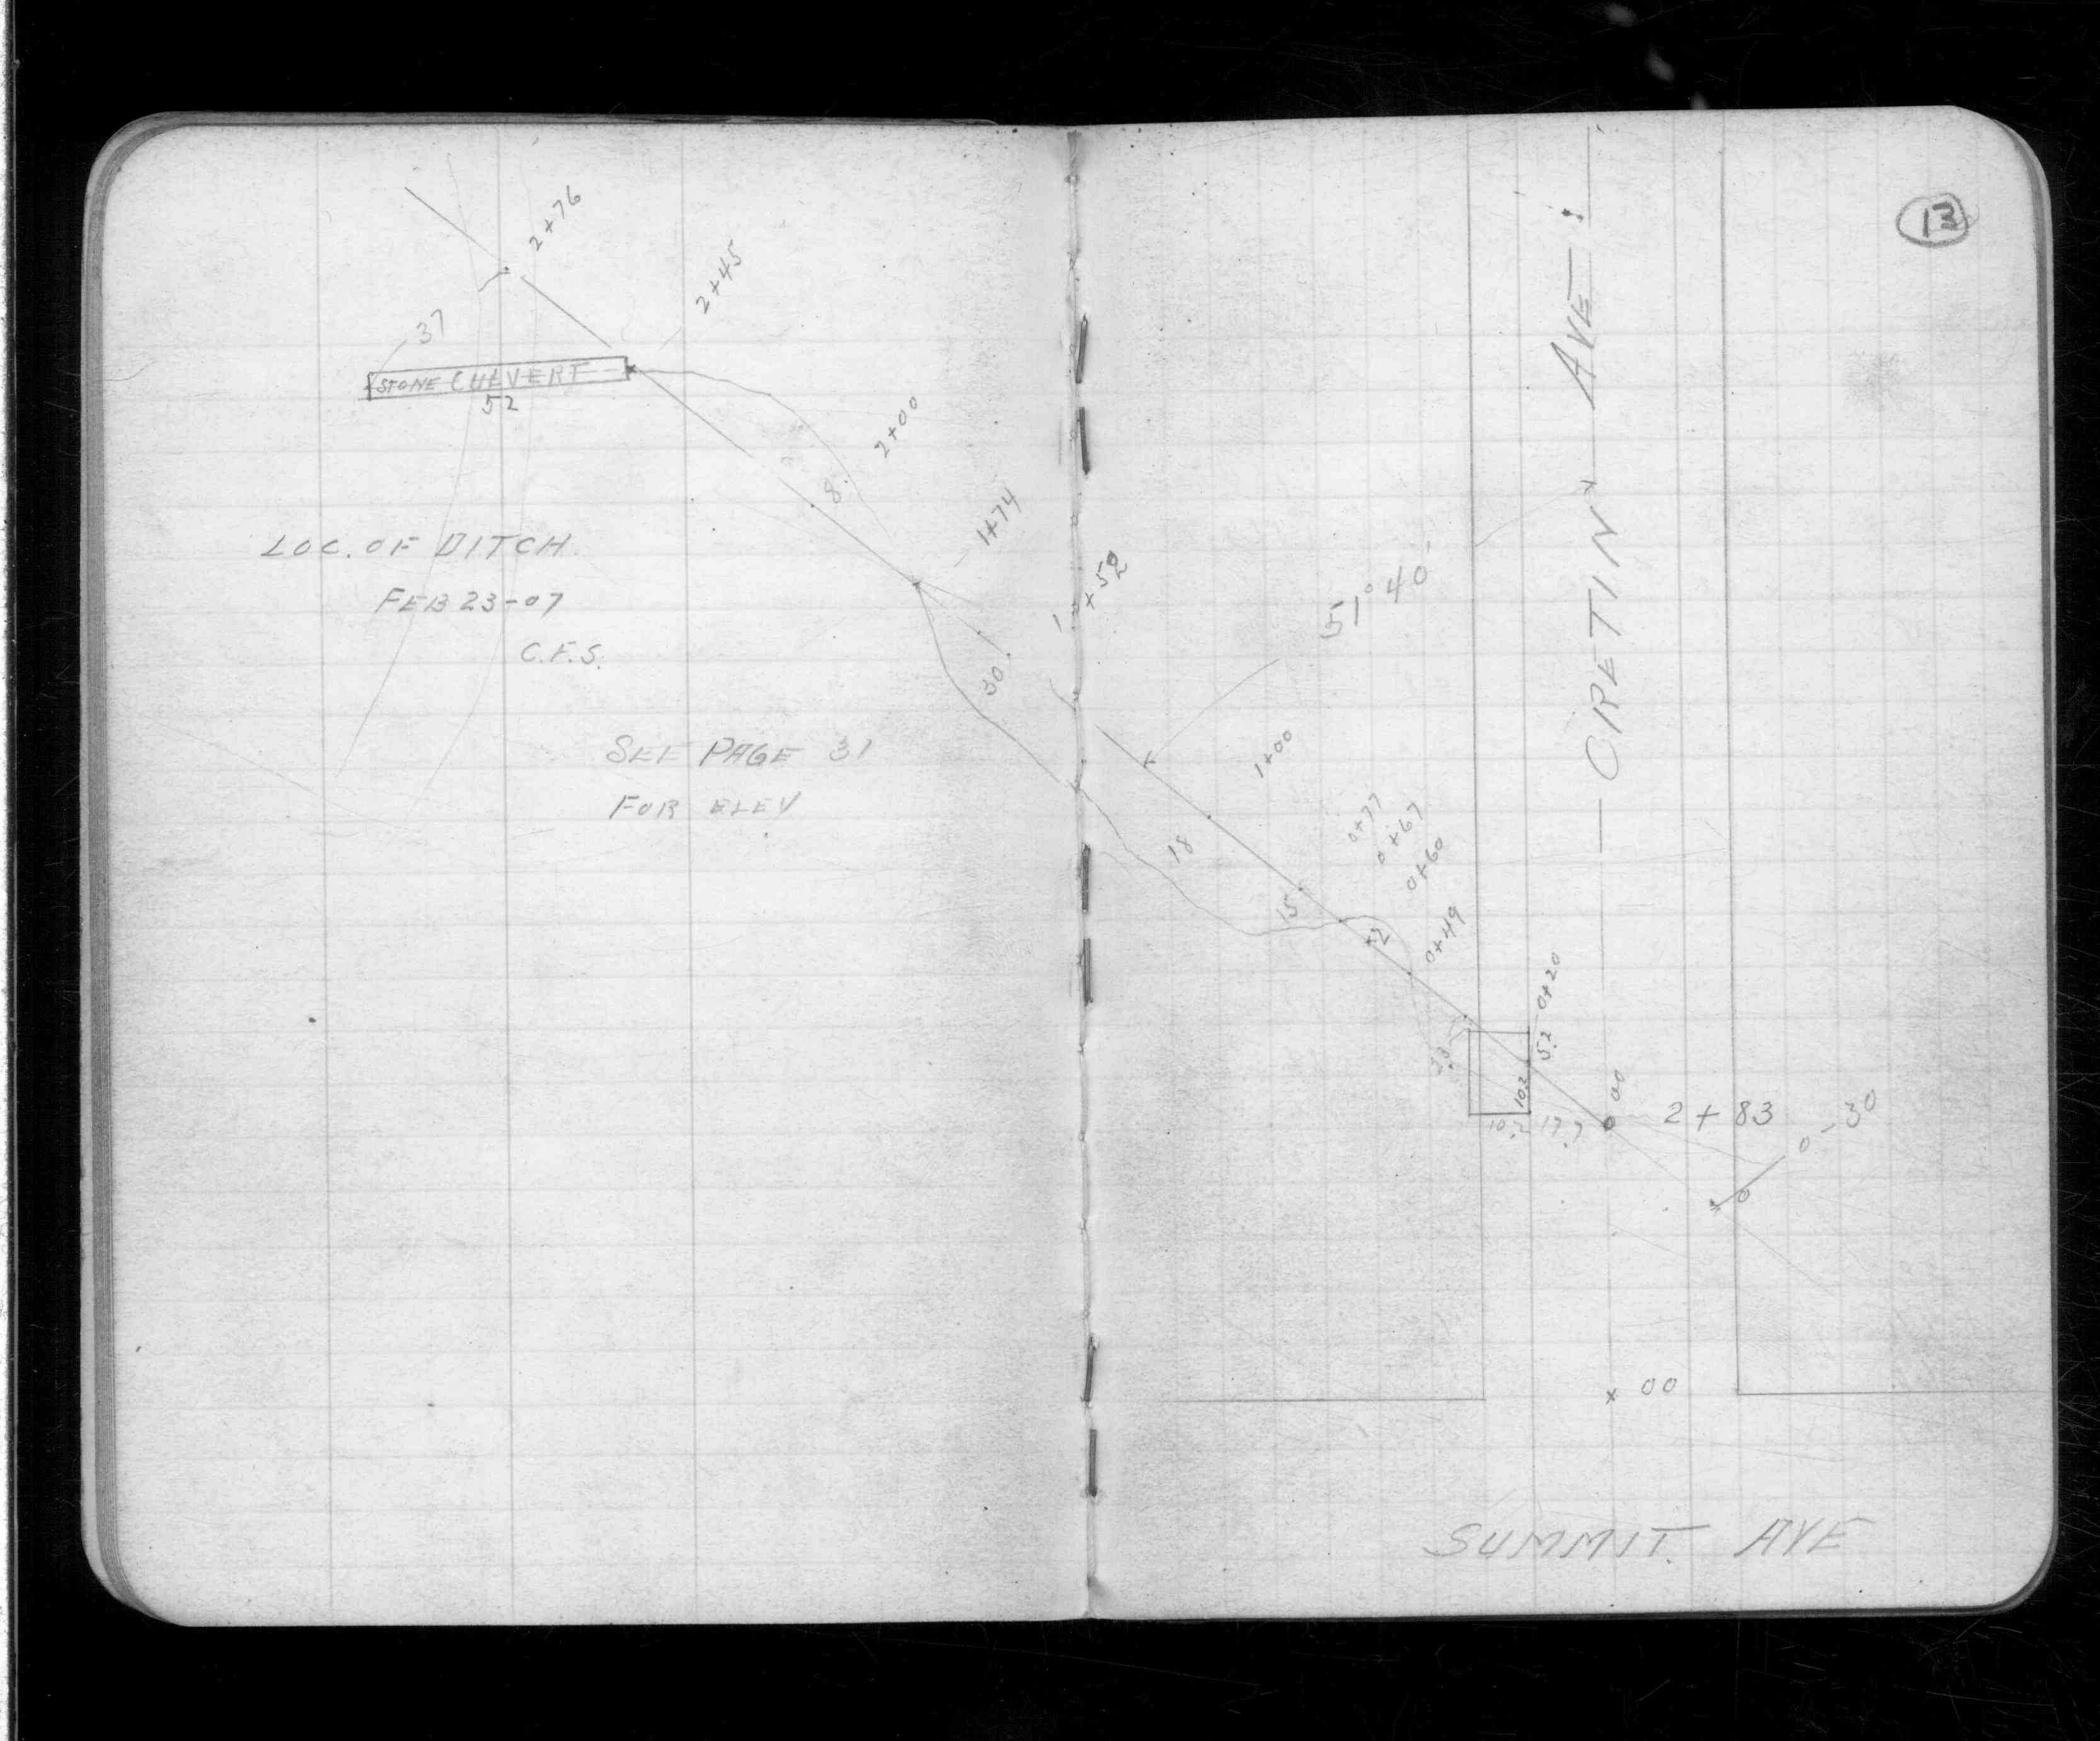 2+76
2+45
37
STONE CULVERT
52
2+00
8
1+74
LOC. OF DITCH
FEB 23-07
C.F.S.
30
SEE PAGE 31
FOR ELEV
13
CRETIN AVE
1+52
51° 40'
1+00
18
0+77
0+67
0+60
15
2
0+49
0+20
5.2
10.2
10.2
17.7
00
2+83
0-30
0
00
SUMMIT AVE